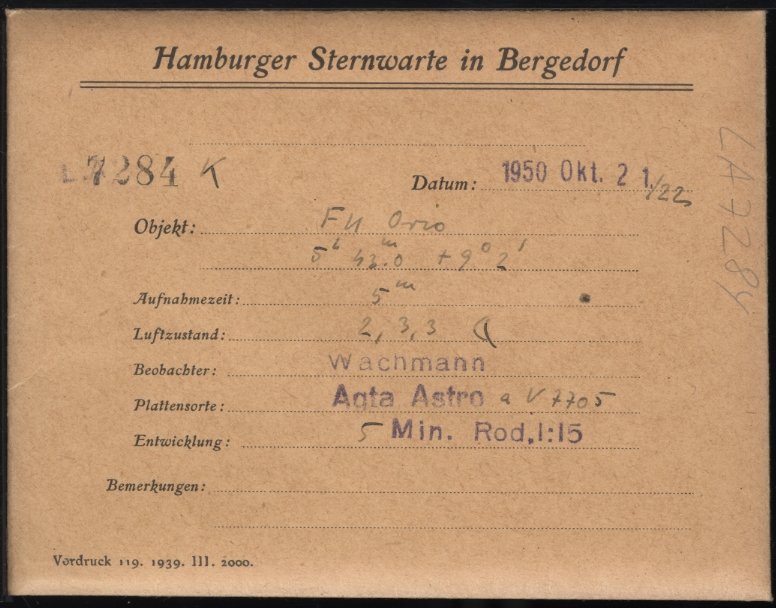 Hamburger Sternwarte in Bergedorf
7284 K
Datum: 1950 Okt. 2 1./22
Objekt: FU Orio
5h 43m.0 + 9° 2'
Aufnahmezeit: 5m
Luftzustand: 2, 3, 3
Beobachter: Wachmann
Plattensorte: Agfa Astro a V 7705
Entwicklung: 5 Min. Rod. 1:15
Bemerkungen:
Vordruck 119. 1939. III. 2000.
LA 7284